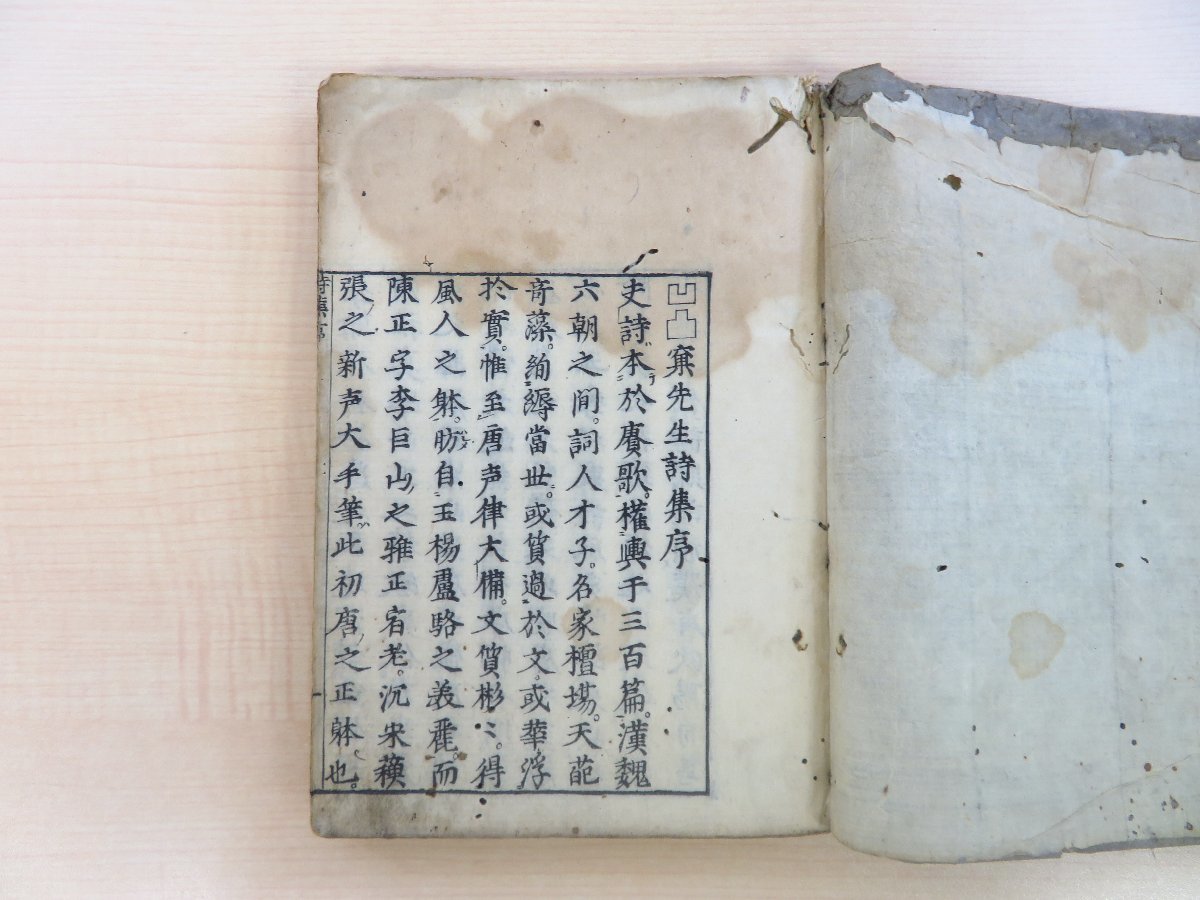 凹凸窠先生詩集序
夫詩本於賡歌。權輿于三百篇。漢魏
六朝之間。詞人才子。名家檀場。天葩
奇藻。絢縟當世。或質過於文。或華浮
於實。惟至唐声律大備。文質彬〻。得
風人之躰。昉自王楊盧駱之義麗。而
陳正字李巨山之雅正宿老。沉宋蘓
張之新声大手筆。此初唐之正躰也。